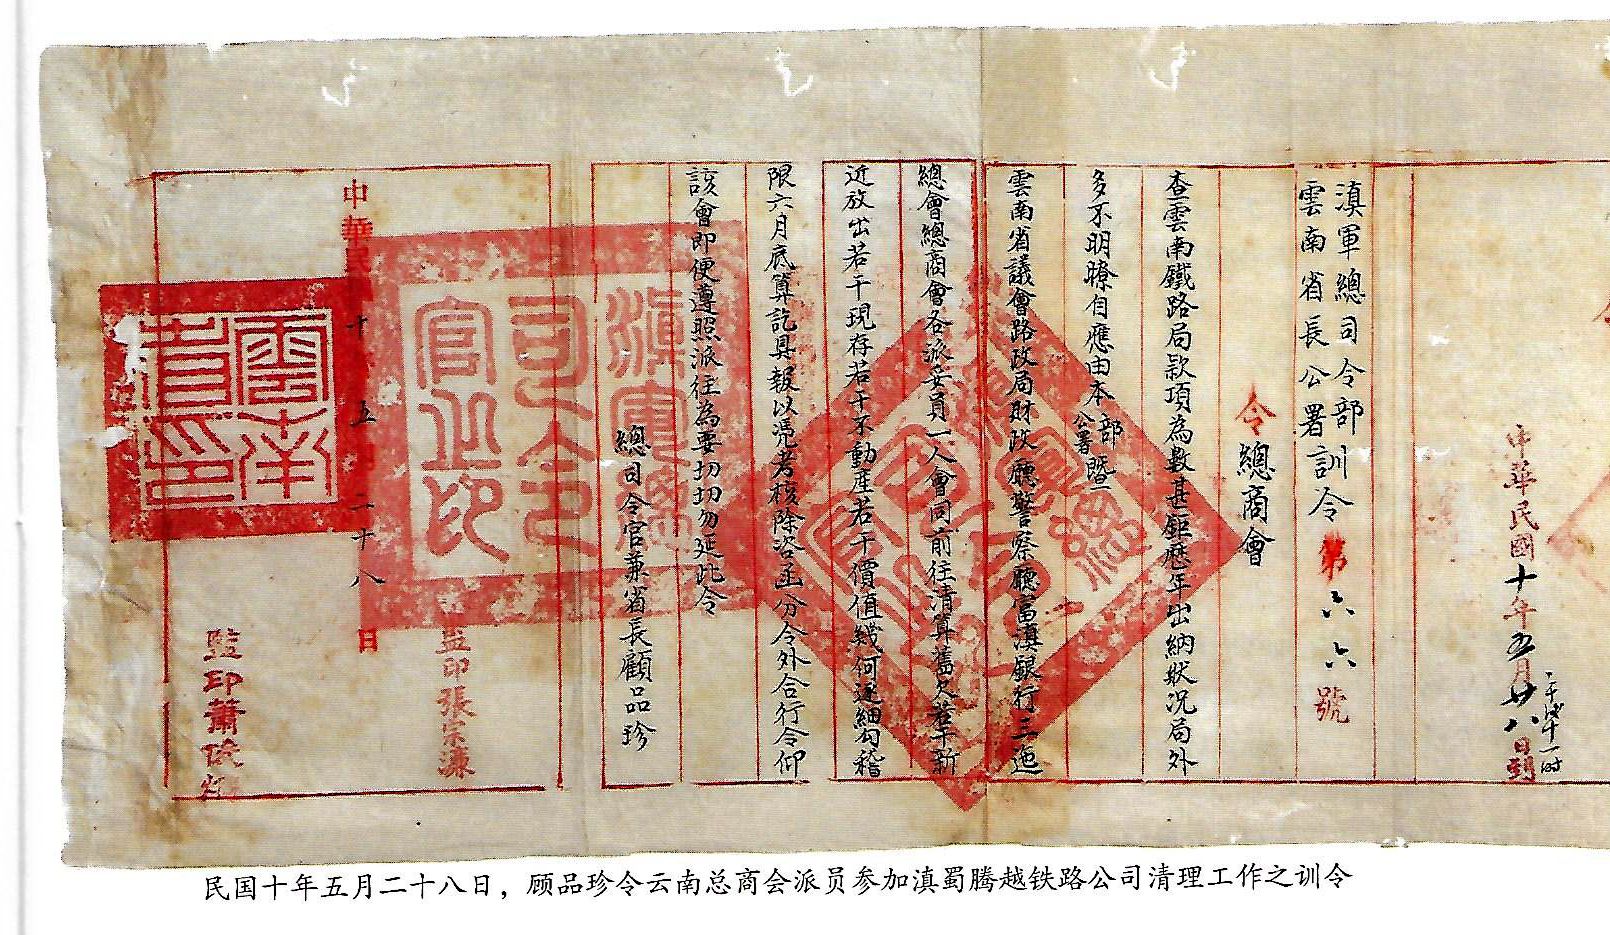 中華民國十年五月廿八日到
滇軍總司令部
雲南省長公署訓令第六六號
令總商會
查雲南鐵路局款項為數甚鉅歷年出納狀況局外
多不明瞭自應由本部公署暨
雲南省議會路政局財政廳警察廳富滇銀行三迤
總會總商會各派妥員一人會同前往清算舊欠若干新
近放出若干現存若干不動產若干價值幾何逐細勾稽
限六月底算訖具報以憑考核除咨函分令外合行令仰
該會即便遵照派往為要切切勿延此令
總司令官兼省長顧品珍
滇軍總司令官之印
監印張
中華
十
五
二十八日
雲南省印
監印蕭
民国十年五月二十八日，顾品珍令云南总商会派员参加滇蜀腾越铁路公司清理工作之训令